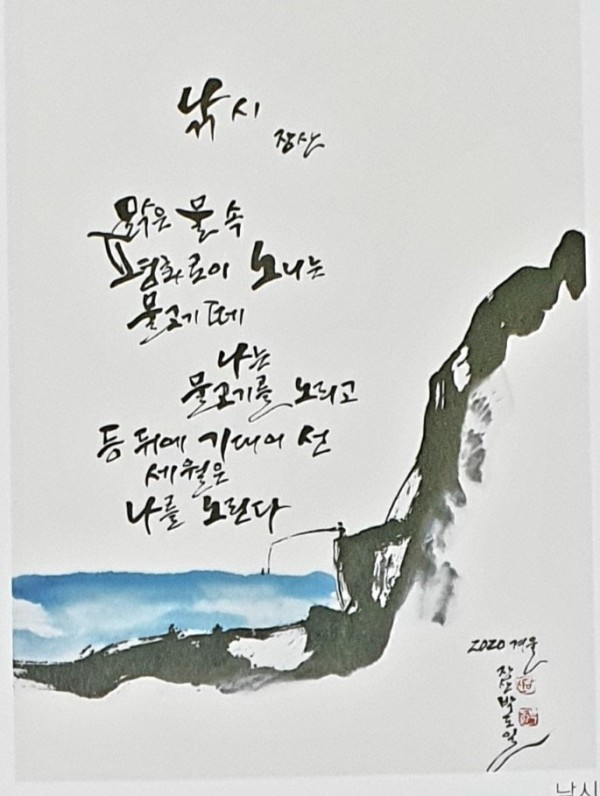 낚시
장산
맑은 물 속
평화로이 노니는
물고기 떼
나는
물고기를 노리고
등 뒤에 기대어 선
세월은
나를 노린다
2020 겨울
장산 박도일
낚시